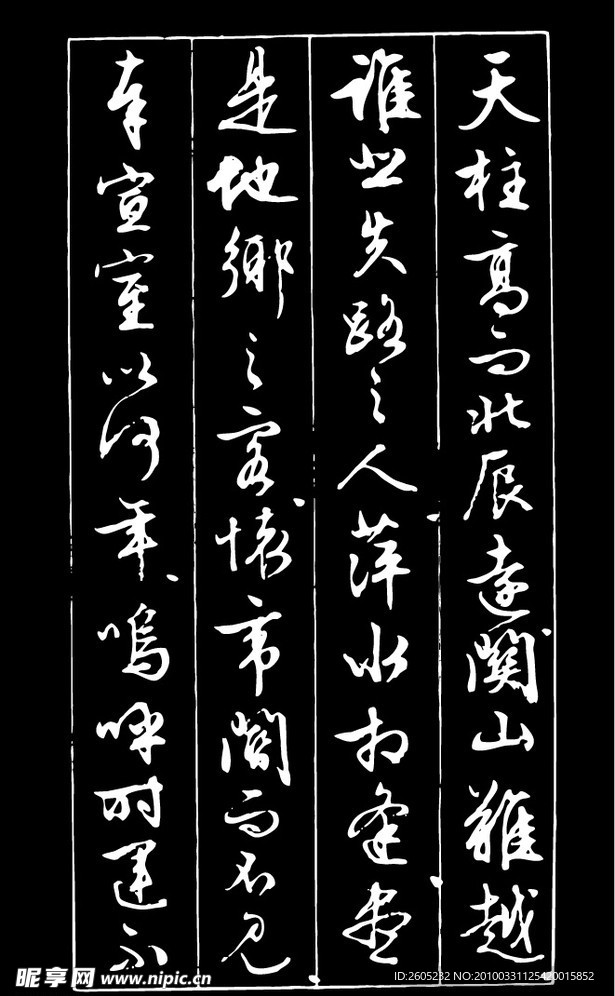 天柱高而北辰遠關山難越
誰悲失路之人萍水相逢盡
是他鄉之客懷帝閽而不見
奉宣室以何年嗚呼時運不
昵享网 www.nipic.cn
ID:2605232 NO:20100331125420015852